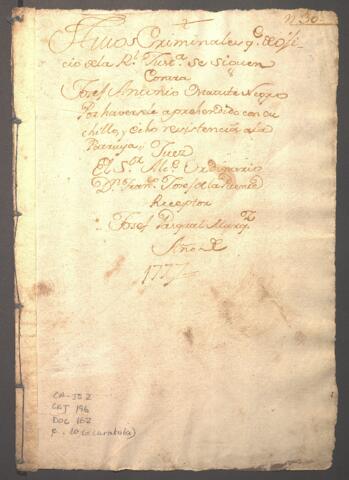 N. 30.
Autos Criminales q.e de ofi
cio de la R.l Just.a se siguen
Contra
Josef Antonio Negro
Por haversele aprehendido con cu
chillo, y echo resistencia a la
Patruya
Juez
El S.or Alc.e Ordinario
D.n Fran.co Josef de la Puente
Receptor
Josef Pasqual Muñoz
Año de
177
CA-JO 2
CAJ 196
DOC 162
f. 10 (+ caratula)